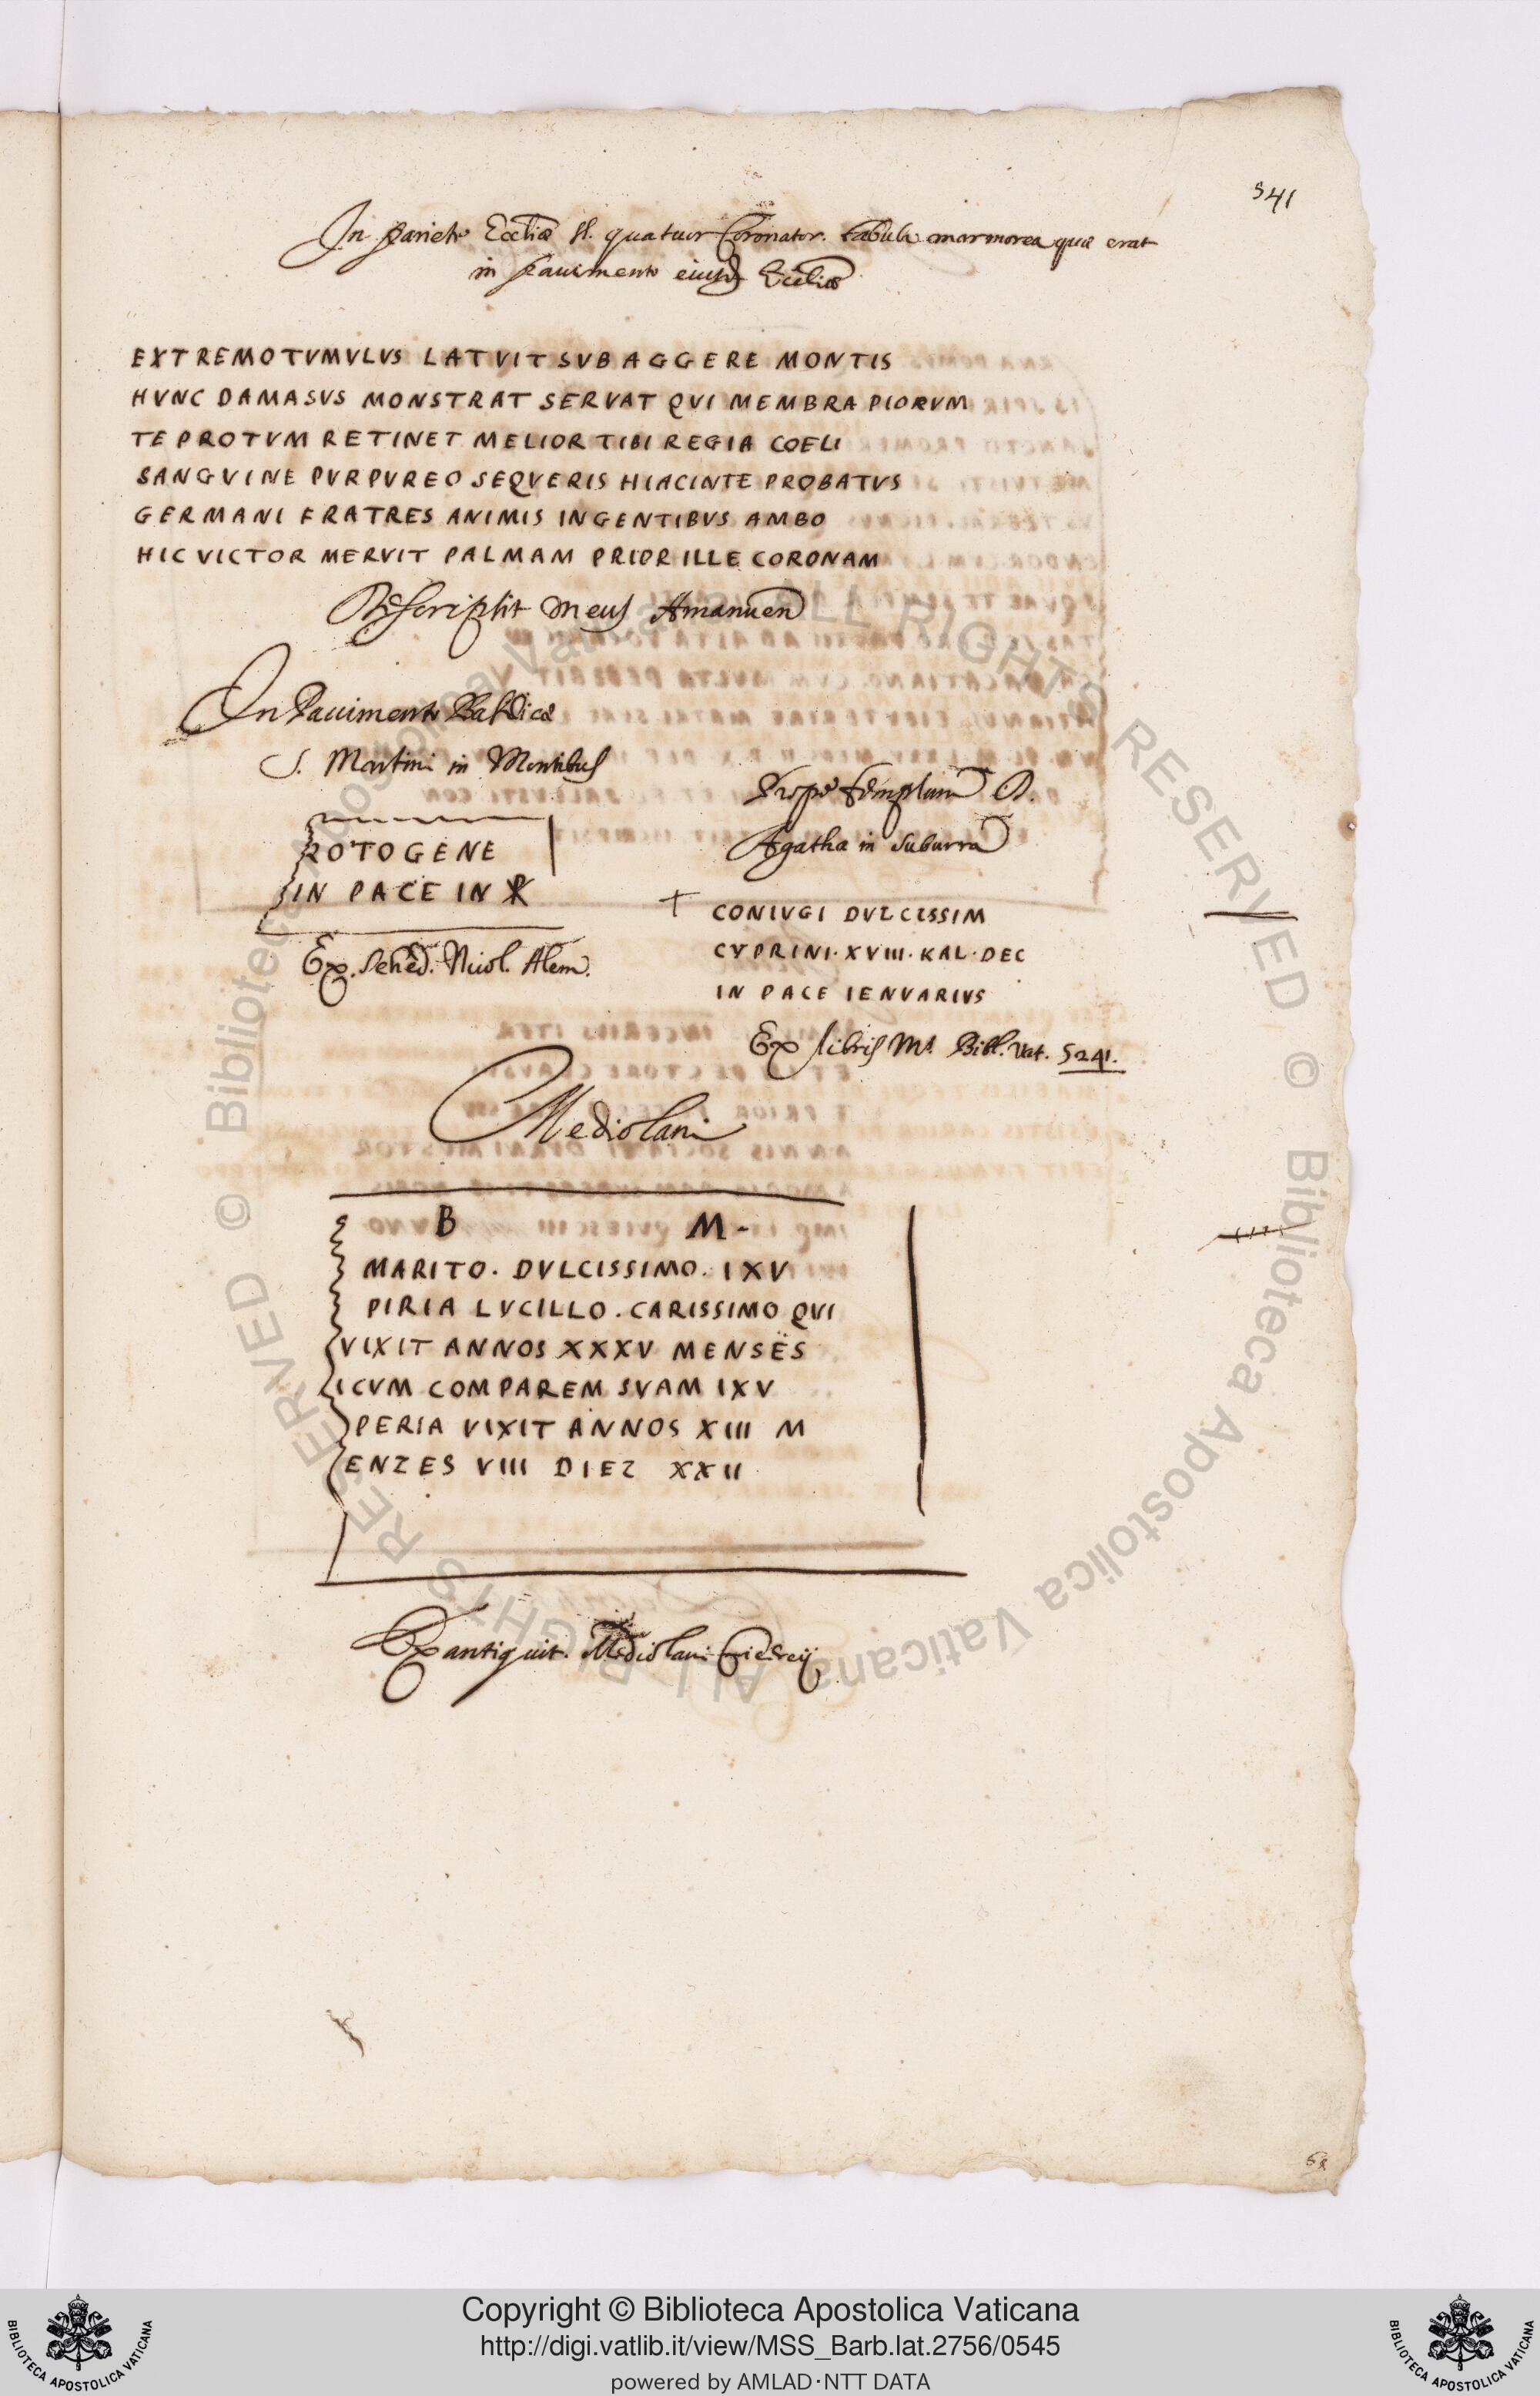 541
In pariete Eccliæ SS. quatuor Coronator. tabula marmorea quæ erat
in pauimento eiusd Eccliæ
EXTREMO TVMVLVS LATVIT SVB AGGERE MONTIS
HVNC DAMASVS MONSTRAT SERVAT QVI MEMBRA PIORVM
TE PROTVM RETINET MELIOR TIBI REGIA COELI
SANGVINE PVRPVREO SEQVERIS HIACINTE PROBATVS
GERMANI FRATRES ANIMIS INGENTIBVS AMBO
HIC VICTOR MERVIT PALMAM PRIOR ILLE CORONAM
Descripsit meus Amanuen
In Pauimento Basilicæ
S. Martini in Montibus
ROTOGENE
IN PACE IN ☧
Ex. Sched. Nicol. Alem.
Prope templum D.
Agatha in Suburra
+ CONIVGI DVLCISSIM
CYPRINI·XVIII·KAL·DEC
IN PACE IENVARIVS
Ex libris Ms. Bibl. Vat. 5241.
Mediolani
B M-
MARITO. DVLCISSIMO. IXV
PIRIA LVCILLO. CARISSIMO QVI
VIXIT ANNOS XXXV MENSES
ICVM COMPAREM SVAM IXV
PERIA VIXIT ANNOS XIII M
ENZES VIII DIEZ XXII
Ex antiquit. Mediolani
Copyright © Biblioteca Apostolica Vaticana
http://digi.vatlib.it/view/MSS_Barb.lat.2756/0545
powered by AMLAD·NTT DATA
BIBLIOTECA APOSTOLICA VATICANA
BIBLIOTECA APOSTOLICA VATICANA
© Biblioteca Apostolica Vaticana ALL RIGHTS RESERVED
© Biblioteca Apostolica Vaticana ALL RIGHTS RESERVED